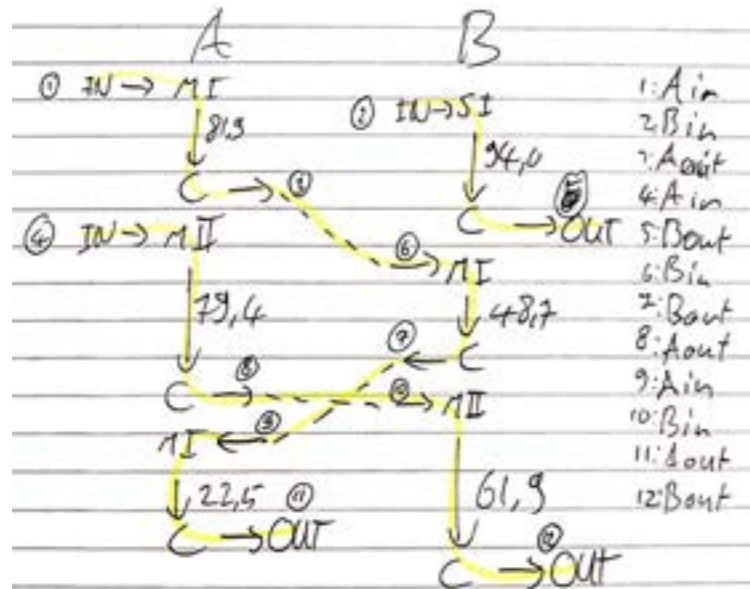 A B
① IN → MI
81,9
C → ③
④ IN → MII
79,4
C → ⑧
MI ← ⑨
22,5 ⑪
C → OUT
② IN → SI
94,0
C → OUT ⑤
⑥ → MI
48,7
⑦ ← C
→ MII
61,9
C → ⑫ OUT
1: Ain
2: Bin
3: Aout
4: Ain
5: Bout
6: Bin
7: Bout
8: Aout
9: Ain
10: Bin
11: Aout
12: Bout